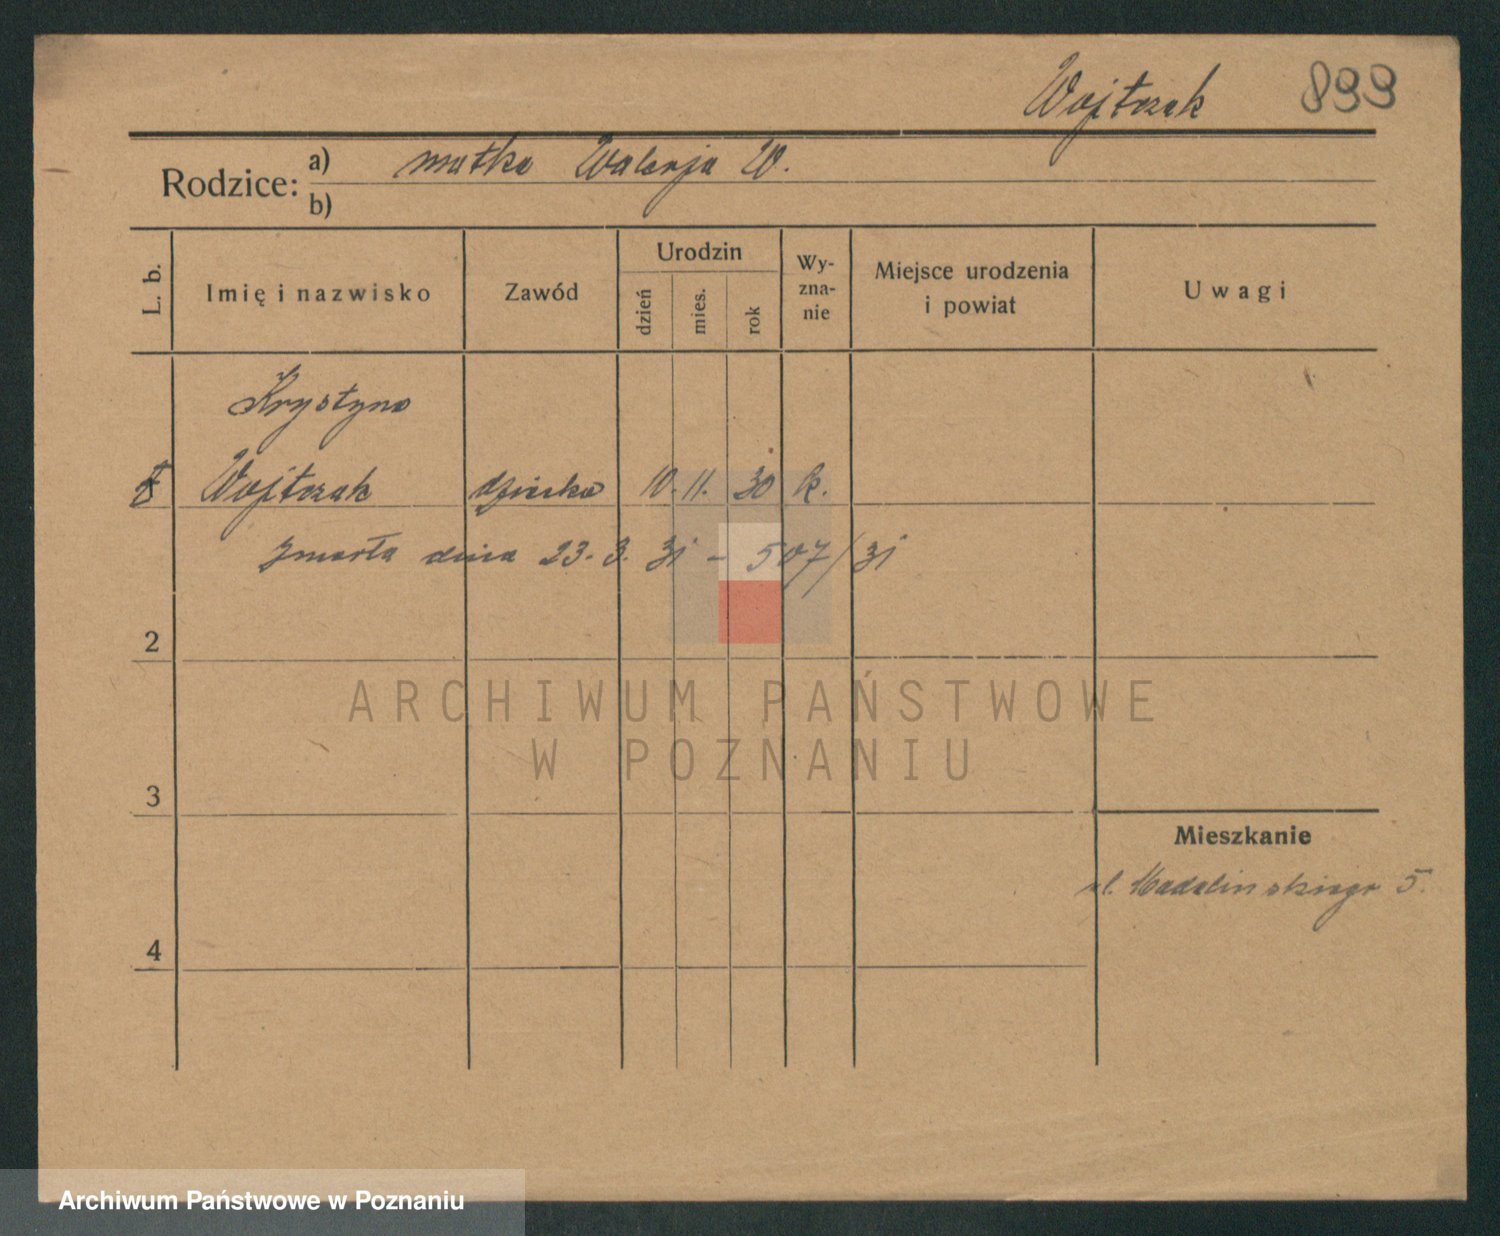 Wojtczak 899
Rodzice: a) matka Walerja W.
b)
L. b.
Imię i nazwisko
Zawód
Urodzin
dzień
mies.
rok
Wy-
zna-
nie
Miejsce urodzenia
i powiat
Uwagi
Krystyna
Wojtczak dziecko 10. 11. 30 k.
zmarła dnia 23. 3. 31 - 507/31
2
3
4
Mieszkanie
ul. Madalinskiego 5.
ARCHIWUM PAŃSTWOWE
W POZNANIU
Archiwum Państwowe w Poznaniu